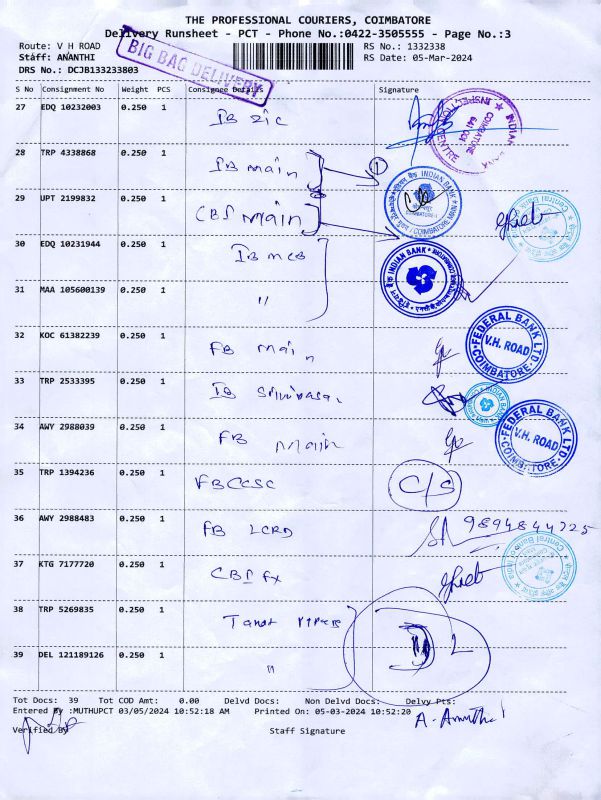 THE PROFESSIONAL COURIERS, COIMBATORE
Delivery Runsheet - PCT - Phone No.:0422-3505555 - Page No.:3
Route: V H ROAD RS No.: 1332338
Staff: ANANTHI RS Date: 05-Mar-2024
DRS No.: DCJB133233803
BIG BAG DELIVERY
S No Consignment No Weight PCS Consignee Details Signature
27 EDQ 10232003 0.250 1 IB
INSPECTION CENTRE COIMBATORE 641 001 INDIAN
28 TRP 4338868 0.250 1 IB main 1
INDIAN BANK COIMBATORE MAIN
29 UPT 2199832 0.250 1 CBI main
30 EDQ 10231944 0.250 1 IB MCB
INDIAN BANK
31 MAA 105600139 0.250 1 "
32 KOC 61382239 0.250 1 FB main
FEDERAL BANK LTD V.H. ROAD COIMBATORE
33 TRP 2533395 0.250 1 IB
34 AWY 2988039 0.250 1 FB Main
FEDERAL BANK LTD V.H. ROAD COIMBATORE
35 TRP 1394236 0.250 1 FBCCSC C/S
36 AWY 2988483 0.250 1 FB LCRD 9894844725
37 KTG 7177720 0.250 1 CBI Fx
Central Bank of India
38 TRP 5269835 0.250 1
39 DEL 121189126 0.250 1 "
Tot Docs: 39 Tot COD Amt: 0.00 Delvd Docs: Non Delvd Docs: Delvy Pts:
Entered By :MUTHUPCT 03/05/2024 10:52:18 AM Printed On: 05-03-2024 10:52:20
Verified By Staff Signature